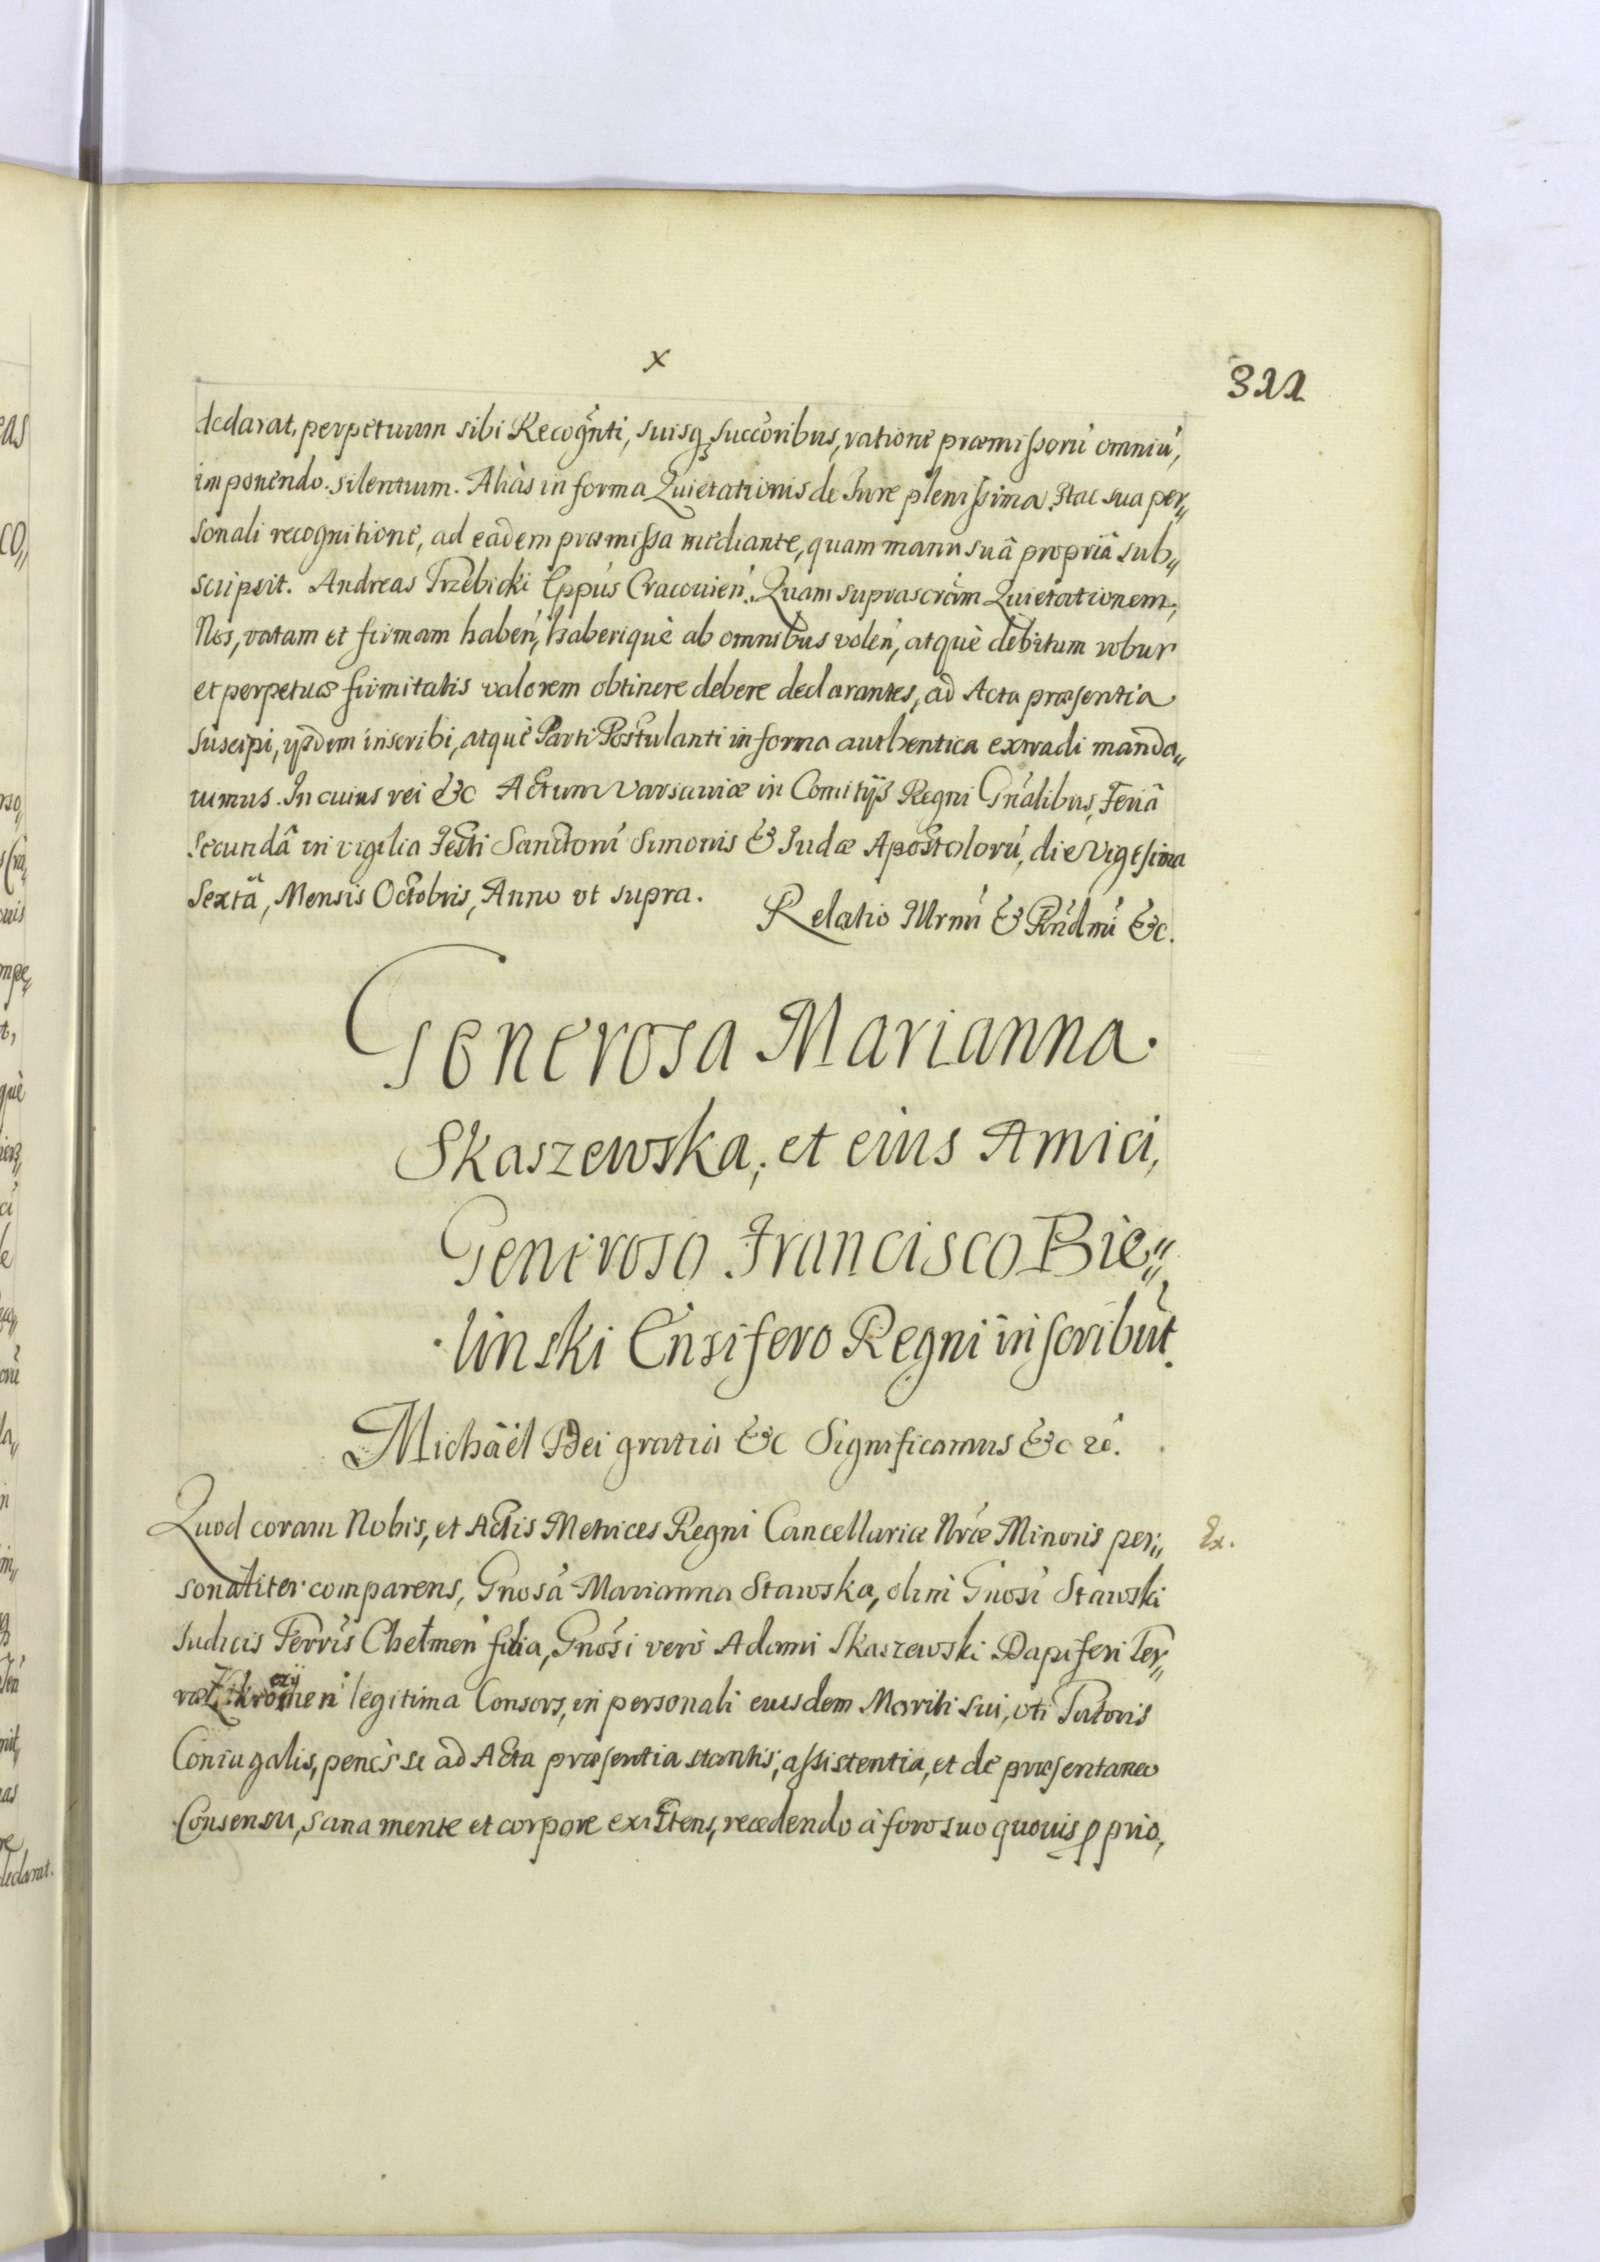 x
311
declarat, perpetuum sibi Recognti, suisq̃ succoribus, ratione præmissorũ omniũ,
imponendo silentium. Aliàs in forma Quietationis de Jure plenissima. Hac sua per„
sonali recognitione, ad eadem præmissa mediante, quam manu suâ propriâ sub„
scripsit. Andreas Trzebicki Eppus Cracouien̄. Quam suprascr̃tam Quietationem,
Nos, ratam et firmam haben̄, haberiquè ab omnibus volen̄, atquè debitum robur
et perpetuæ firmitatis valorem obtinere debere declarantes, ad Acta præsentia
suscipi, ysdem inscribi, atquè Parti Postulanti in forma authentica extradi manda„
uimus. In cuius rei &c Actum Varsauiæ in Comitijs Regni Gn̄alibus, Feriâ
secundâ in vigilia Festi Sanctorũ Simonis & Judæ Apostolorũ, die Vigesima
Sextâ, Mensis Octobris, Anno vt supra.
Relatio Illrmi & Rndmi &c.
Generosa Marianna
Skaszewska, et eius Amici,
Generoso Francisco Bie„
linski Ensifero Regni inscribūt.
Michäel Dei gratia &c Significamus &c
Quod coram Nobis, et Actis Metrices Regni Cancellariæ Nr̃æ Minoris per„
Ex.
sonaliter comparens, Gnosa Marianna Stawska, olim Gnosi Stawski
Judicis Terrīs Chełmen̄ filia, Gnosi verò Adami Skaszewski Dapiferi Ter„
ræ legitima Consors, in personali eiusdem Mariti sui, vti Tutoris
Coniugalis, penès se ad Acta præsentia stantis, assistentia, et de præsentaneo
Consensu, sana mente et corpore existens, recedendo à foro suo quouis pprio,